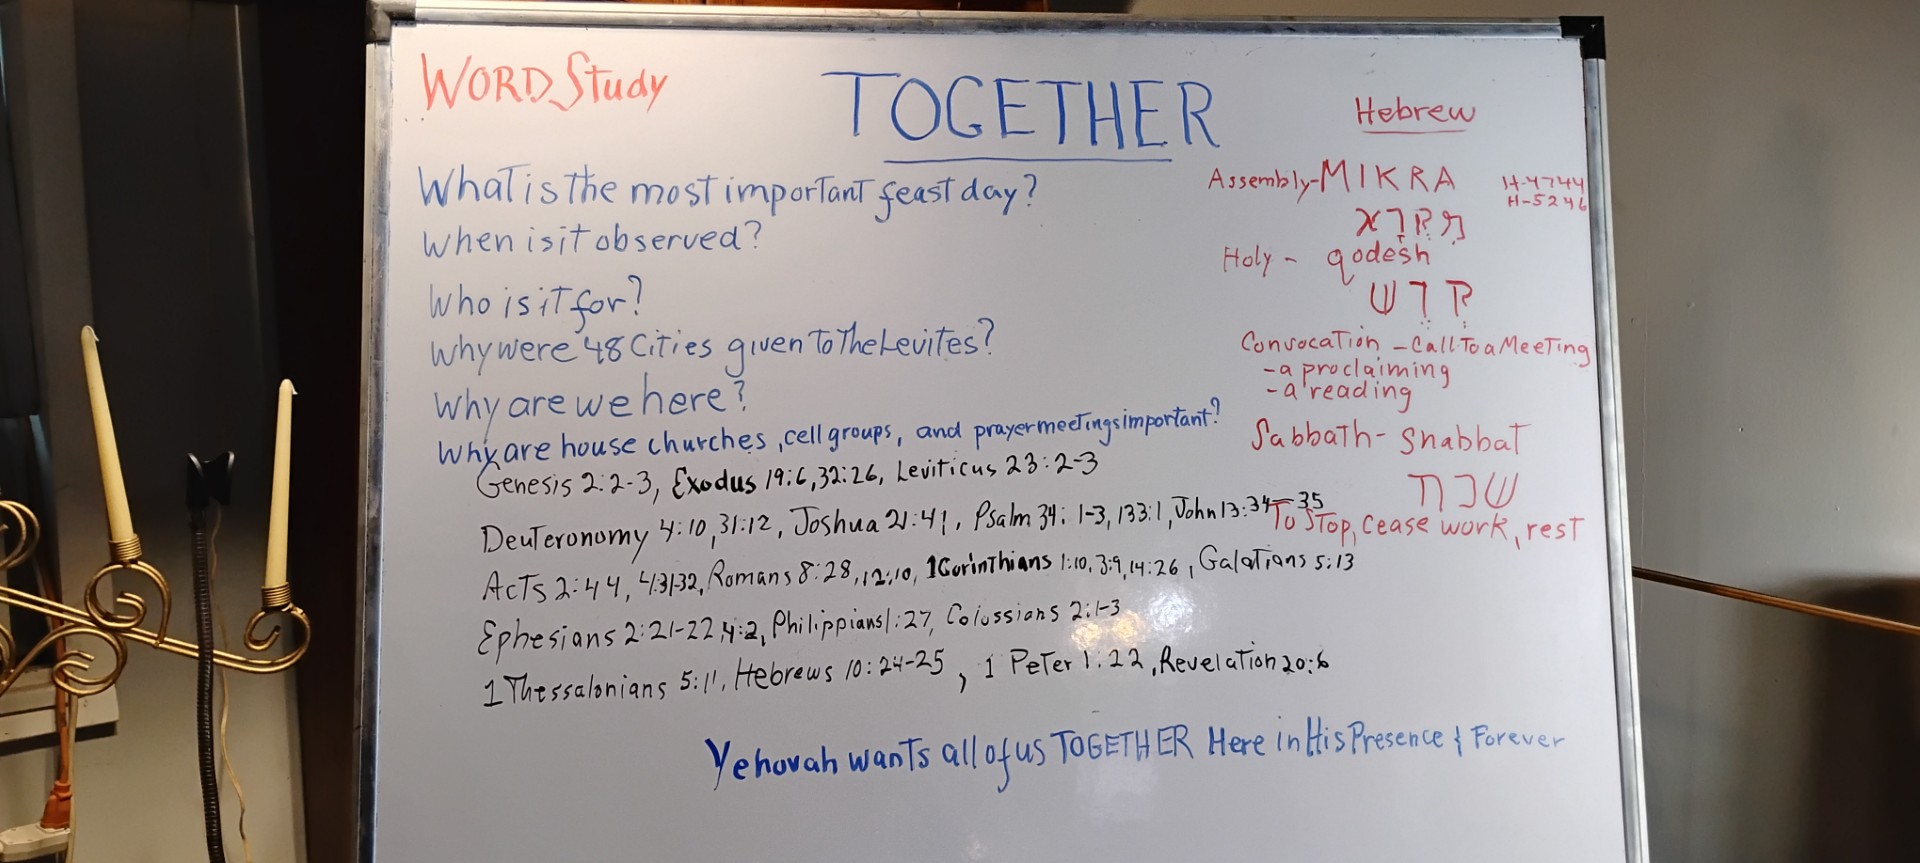 WORD Study
TOGETHER
Hebrew
What is the most important feast day?
When is it observed?
Who is it for?
Why were 48 Cities given To The Levites?
Why are we here?
Why are house churches, cell groups, and prayer meetings important?
Genesis 2:2-3, Exodus 19:6, 32:26, Leviticus 23:2-3
Deuteronomy 4:10, 31:12, Joshua 21:41, Psalm 34:1-3, 133:1, John 13:34-35
Acts 2:44, 4:31-32, Romans 8:28, 12:10, 1 Corinthians 1:10, 3:9, 14:26, Galations 5:13
Ephesians 2:21-22, 4:2, Philippians 1:27, Colossians 2:1-3
1 Thessalonians 5:11, Hebrews 10:24-25, 1 Peter 1:22, Revelation 20:6
Yehovah wants all of us TOGETHER Here in His Presence & Forever
Assembly-MIKRA H-4744
H-5246
מקרא
Holy - qodesh
קדש
Convocation - Call To a Meeting
- a proclaiming
- a reading
Sabbath- Shabbat
שבת
To STop, cease work, rest